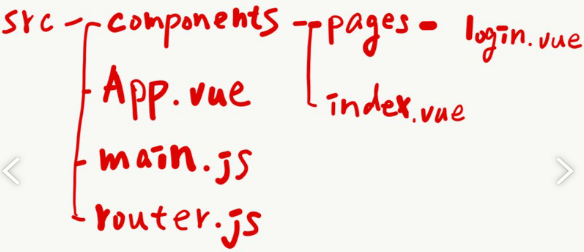 src components pages login.vue
App.vue index.vue
main.js
router.js